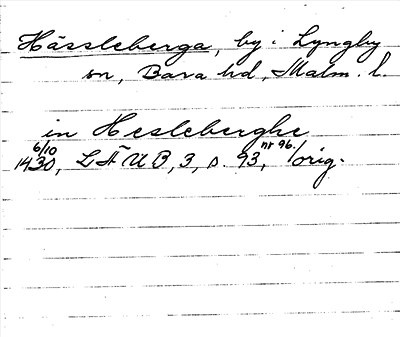 Hässleberga, by i Lyngby
sn, Bara hd, Malm. l.
in Hesleberghe
6/10
1430, LÄUB, 3, s. 93, nr 96. / orig.